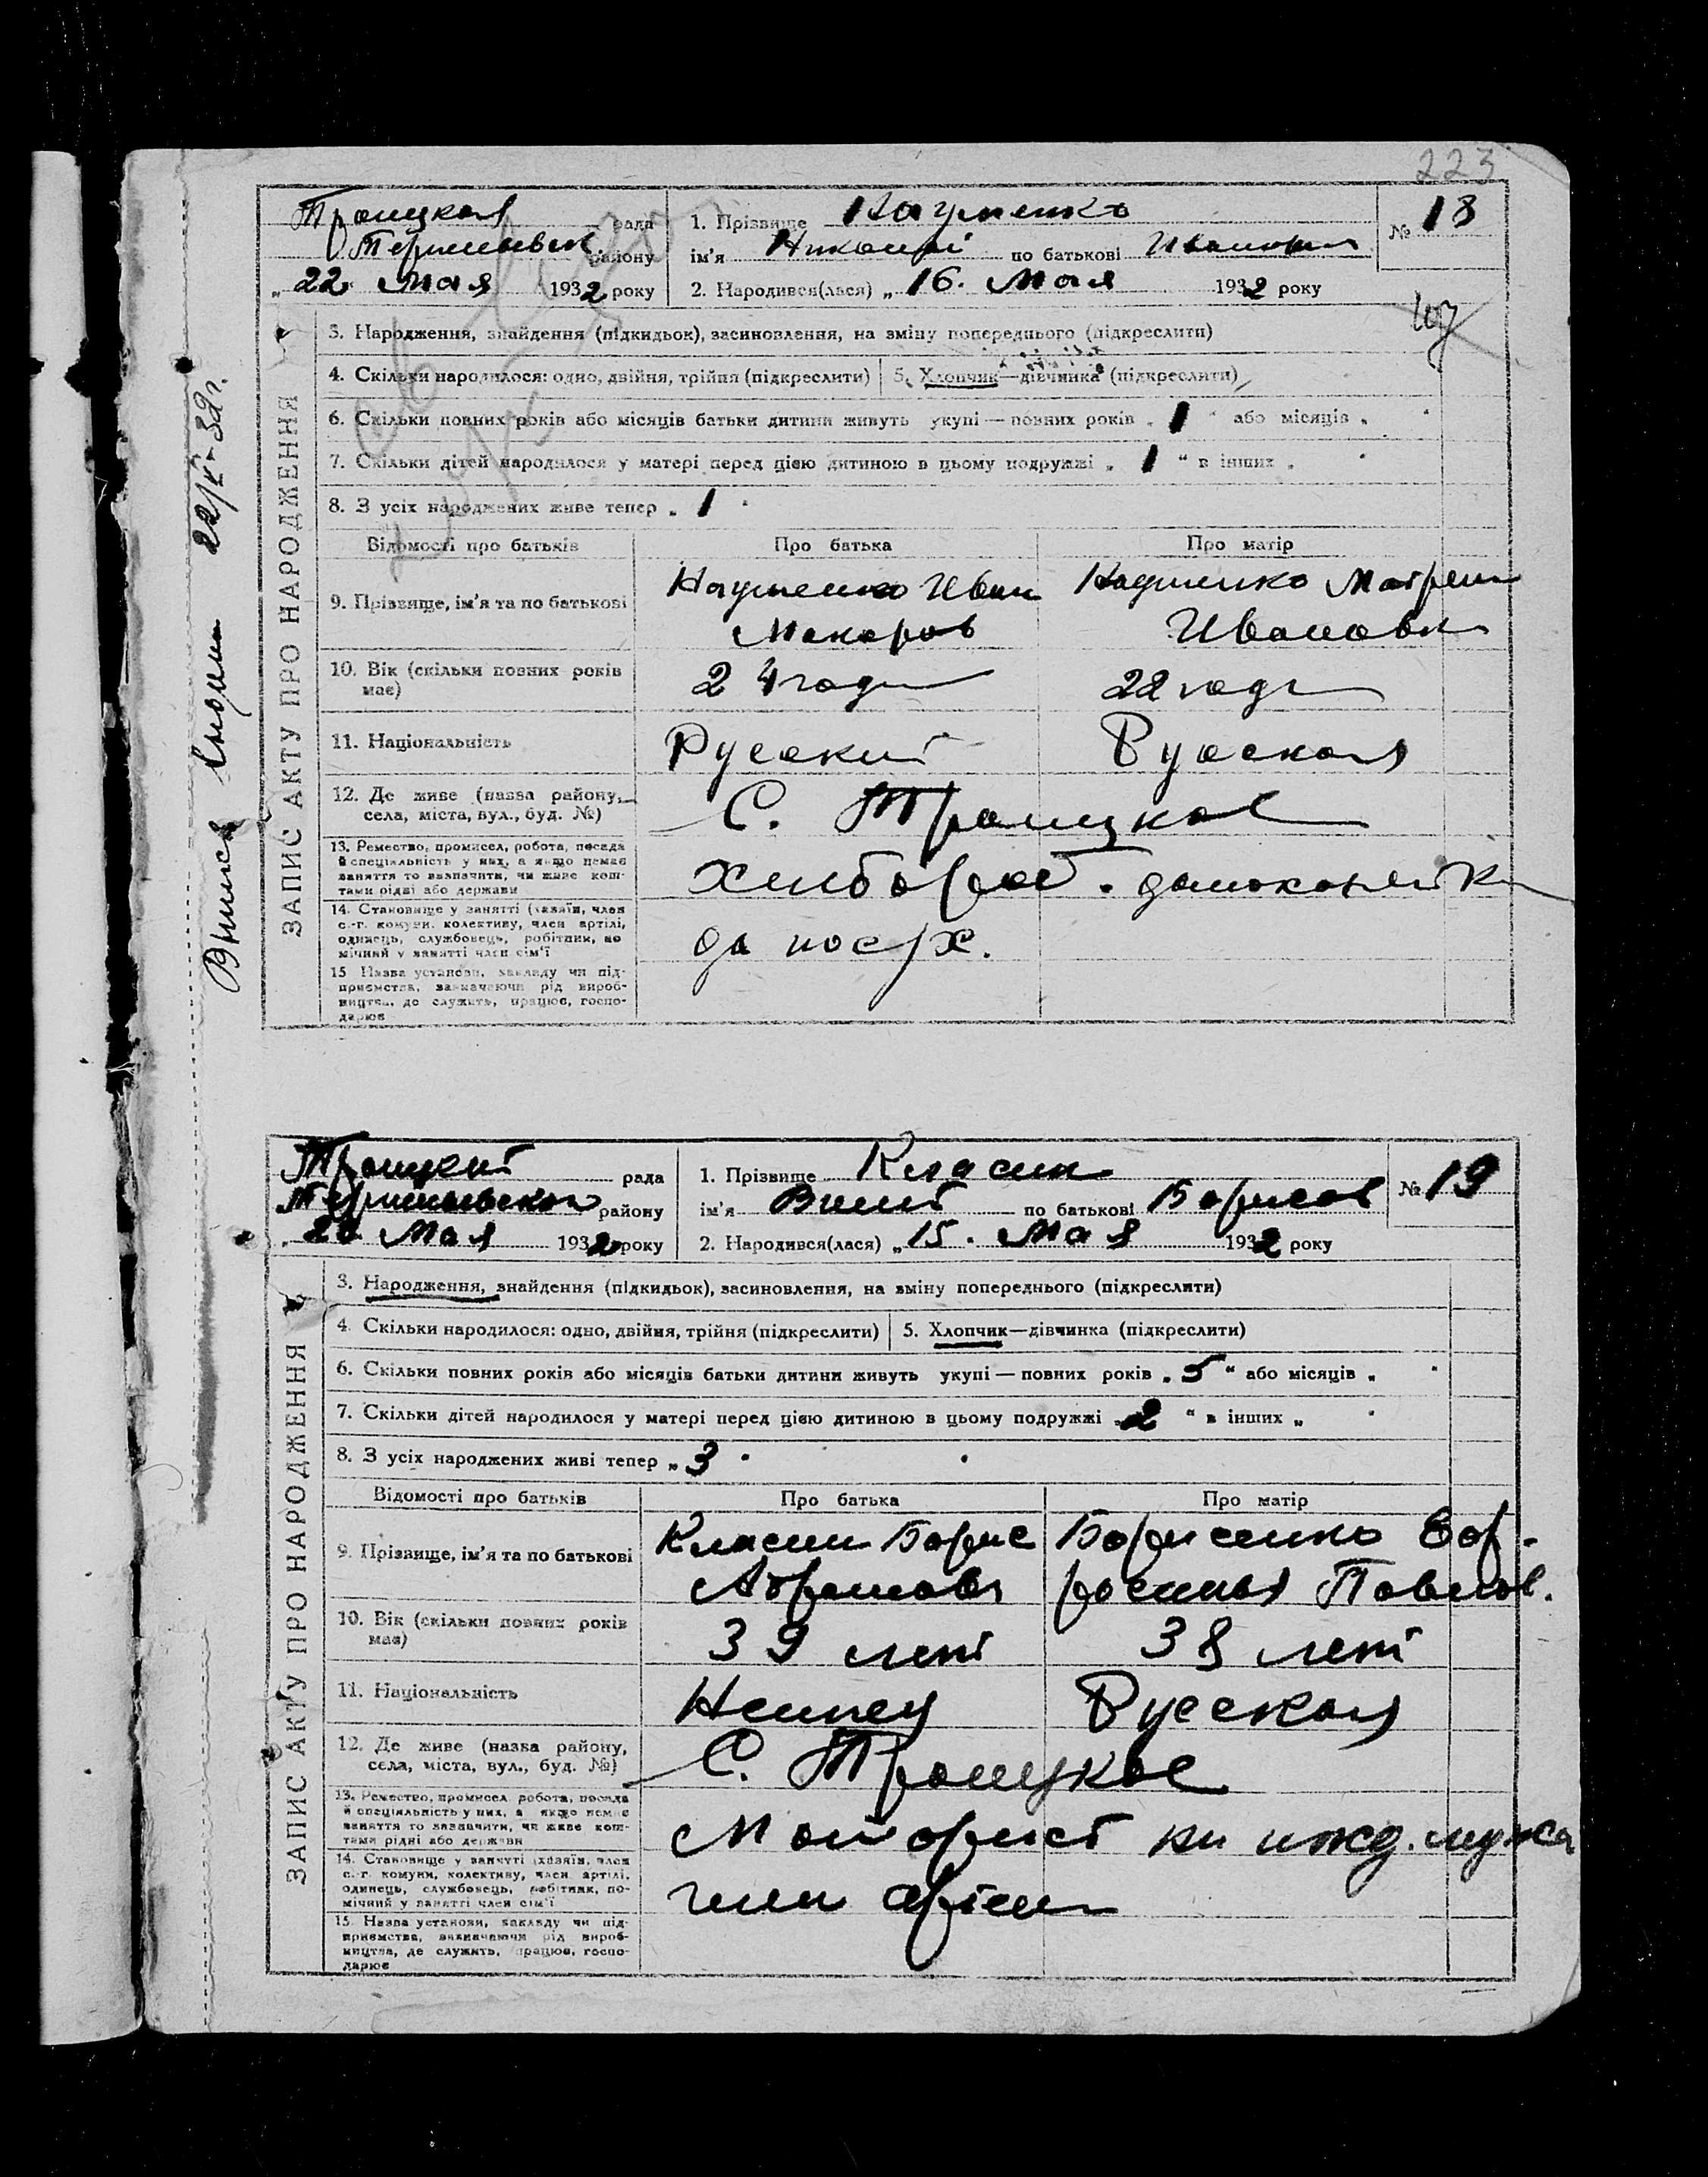 223
Троицкая рада
району
22 Мая 1932 року
1. Прізвище Науменко
ім'я Николай по батькові Иванович
2. Народився(лася) „ 16. Мая 1932 року
№ 18
ЗАПИС АКТУ ПРО НАРОДЖЕННЯ
3. Народження, знайдення (підкидьок), засиновлення, на зміну попереднього (підкреслити)
4. Скільки народилося: одно, двійня, трійня (підкреслити) 5. Хлопчик—дівчинка (підкреслити)
6. Скільки повних років або місяців батьки дитини живуть укупі — повних років „ 1 “ або місяців „
7. Скільки дітей народилося у матері перед цією дитиною в цьому подружжі „ 1 “ в інших „
8. З усіх народжених живе тепер „ 1
Відомості про батьків Про батька Про матір
9. Прізвище, ім'я та по батькові
Науменко Иван
Макаров
Науменко Матрена
Ивановна
10. Вік (скільки повних років має)
24 года
22 года
11. Національність Русский Русская
12. Де живе (назва району, села, міста, вул., буд. №)
С. Троицкое
13. Ремество, промисел, робота, посада
й спеціяльність у них, а якщо немає
заняття то зазначити, чи живе кош-
тами рідні або держави
Хлебороб. домохозяйка
14. Становище у занятті (хазяїн, член
с.-г. комуни, колективу, член артілі,
одинець, службовець, робітник, по-
мічний у занятті член сім'ї
15 Назва установи, закладу чи під-
приємства, зазначаючи рід вироб-
ництва, де служить, працює, госпо-
дарює
22/V-32 г.
Троицкий рада
району
Мая 1932 року
1. Прізвище Класин
ім'я по батькові Борисов
2. Народився(лася) „ 15. Мая 1932 року
№ 19
ЗАПИС АКТУ ПРО НАРОДЖЕННЯ
3. Народження, знайдення (підкидьок), засиновлення, на зміну попереднього (підкреслити)
4. Скільки народилося: одно, двійня, трійня (підкреслити) 5. Хлопчик—дівчинка (підкреслити)
6. Скільки повних років або місяців батьки дитини живуть укупі — повних років „ 5 “ або місяців „
7. Скільки дітей народилося у матері перед цією дитиною в цьому подружжі 2 “ в інших „
8. З усіх народжених живі тепер „ 3
Відомості про батьків Про батька Про матір
9. Прізвище, ім'я та по батькові
Класин Борис
Абрамович
Борисенко Евф-
росинья Павлов.
10. Вік (скільки повних років має)
39 лет
38 лет
11. Національність Немец Русская
12. Де живе (назва району, села, міста, вул., буд. №)
С. Троицкое
13. Ремество, промисел робота, посада
й спеціяльність у них, а якщо немає
заняття то зазначити, чи живе кош-
тами рідні або держави
Моторист на ижд. мужа
14. Становище у занятті (хазяїн, член
с.-г. комуни, колективу, член артілі,
одинець, службовець, робітник, по-
мічний у занятті член сім'ї
член артели
15. Назва установи, закладу чи під-
приємства, зазначаючи рід вироб-
ництва, де служить, працює, госпо-
дарює